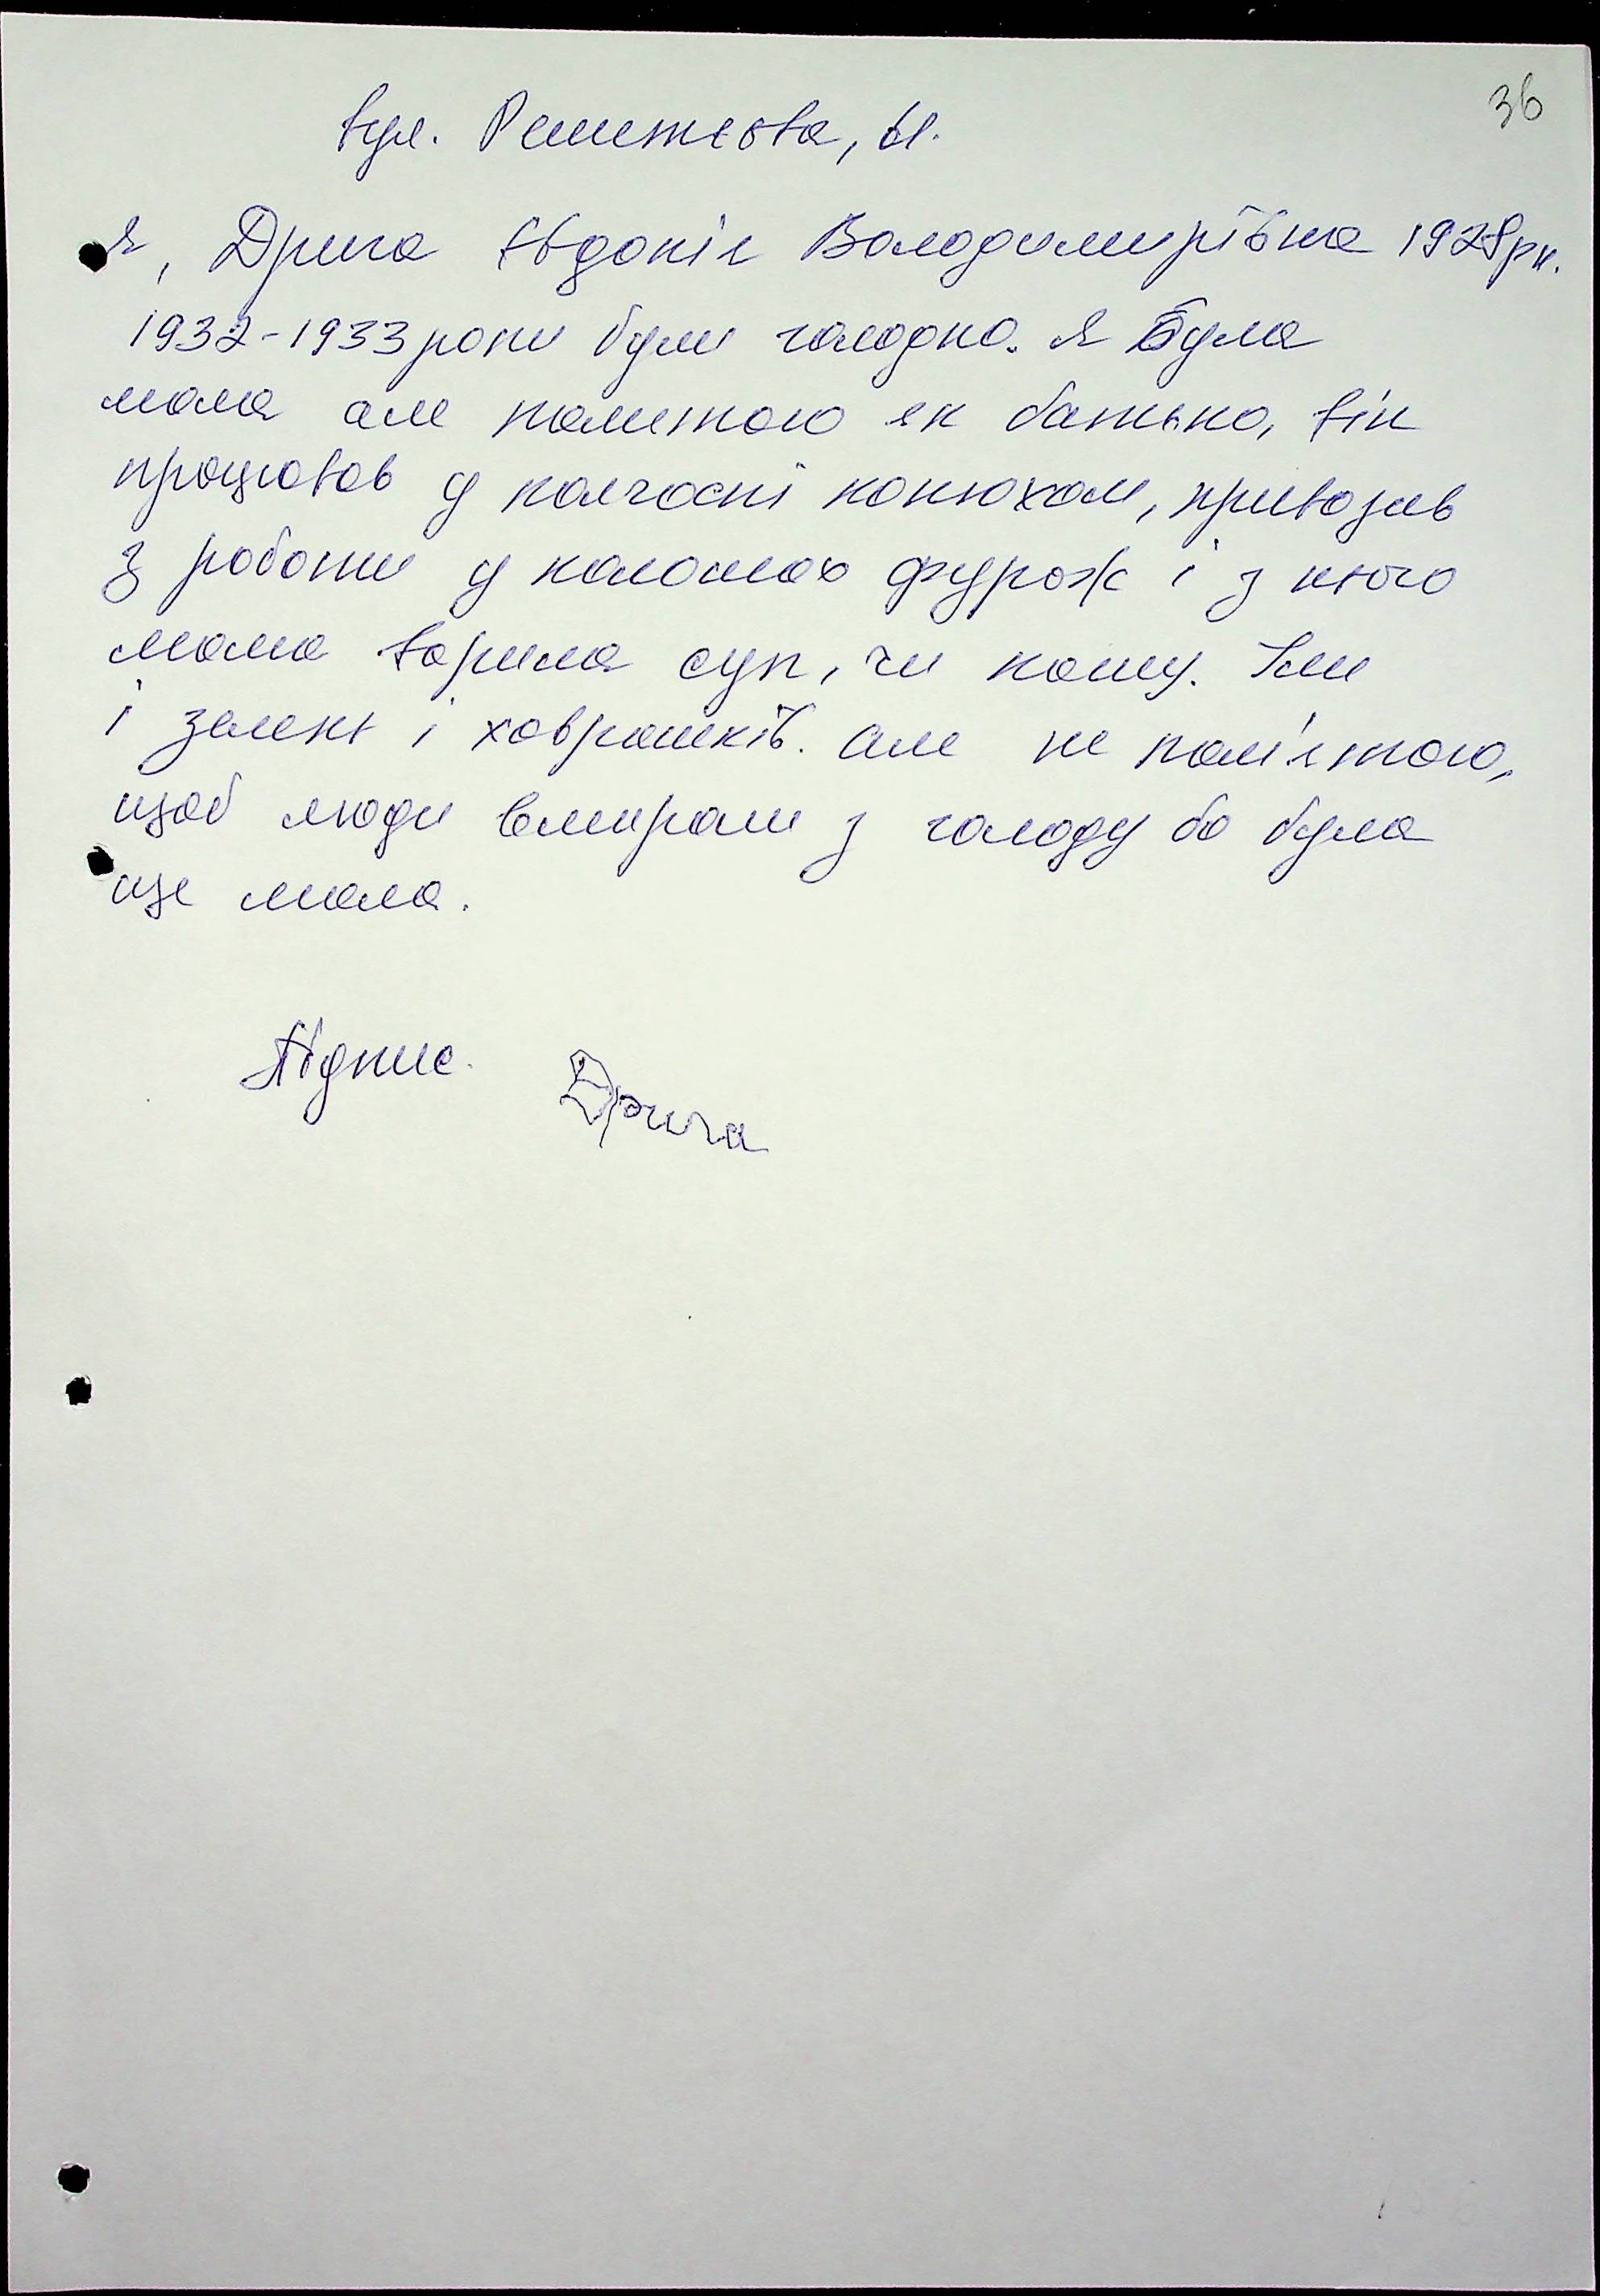 36
вул. Решетєєва, 61.
Я, Дрига Євдокія Володимирівна 1928 рн.
1932-1933 роки були голодно. Я була
мала але памятаю як батько, він
працював у колгоспі конюхом, привозив
з роботи у халошах фураж і з нього
мама варила суп, чи кашу. Їли
і зелень і ховрашків. але не пам'ятаю,
щоб люди вмирали з голоду бо була
ще мала.
Підпис. Дрига